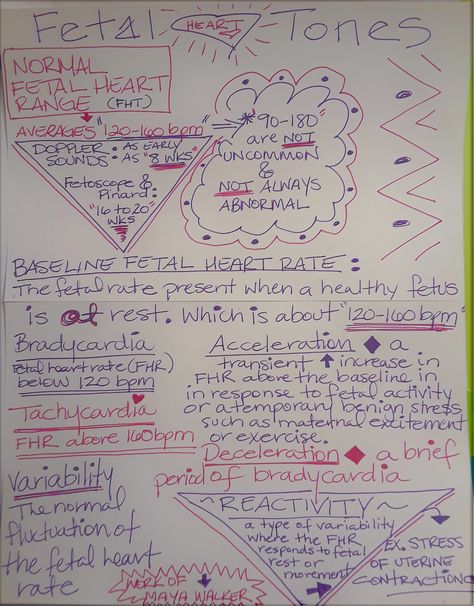 Fetal HEART Tones
NORMAL
FETAL HEART
RANGE (FHT)
AVERAGES "120-160 bpm"
DOPPLER : AS EARLY
SOUNDS : AS "8 WKS"
Fetoscope &
Pinard :
"16 to 20"
WKS
* "90-180"
are NOT
UNCOMMON
&
NOT ALWAYS
ABNORMAL
BASELINE FETAL HEART RATE :
The fetal rate present when a healthy fetus
is at rest. Which is about "120-160 bpm"
Bradycardia
Fetal heart rate (FHR)
below 120 bpm
Tachycardia
FHR above 160bpm
Variability
The normal
fluctuation of
the fetal heart
rate
Acceleration ◆ a
transient ↑ increase in
FHR above the baseline in
in response to fetal activity
or a temporary benign stress,
such as maternal excitement
or exercise.
Deceleration ◆ a brief
period of bradycardia
~REACTIVITY~
a type of variability
where the FHR
responds to fetal
rest or
movement
EX. STRESS
OF UTERINE
CONTRACTIONS
WORK OF
MAYA WALKER